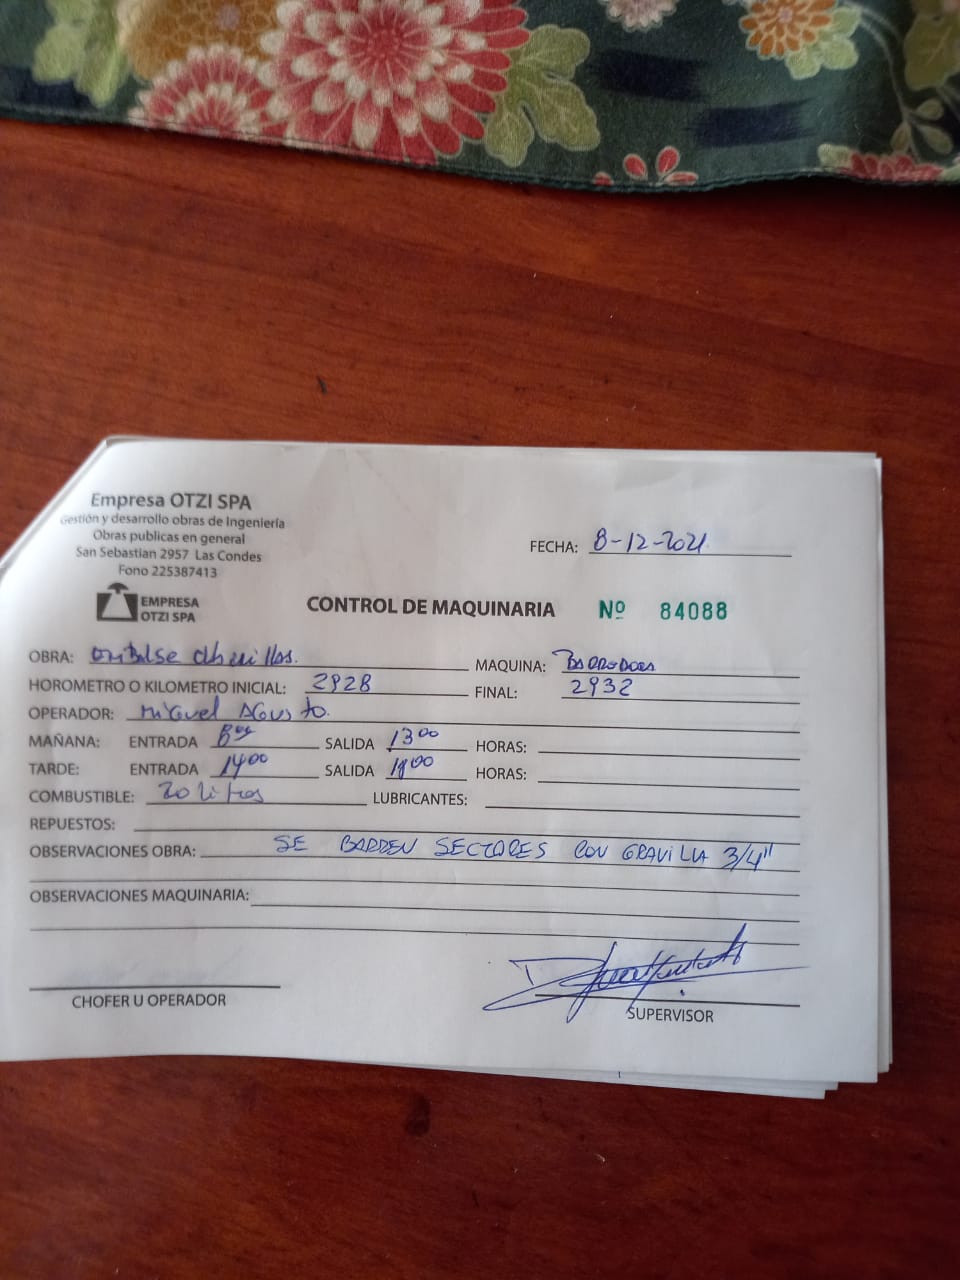 Empresa OTZI SPA
Gestión y desarrollo obras de Ingeniería
Obras publicas en general
San Sebastian 2957 Las Condes
Fono 225387413
FECHA: 8-12-2021
EMPRESA
OTZI SPA
CONTROL DE MAQUINARIA Nº 84088
OBRA:
MAQUINA: Barredora
HOROMETRO O KILOMETRO INICIAL: 2928 FINAL: 2932
OPERADOR: Miguel Agusto.
MAÑANA: ENTRADA 8⁰⁰ SALIDA 13⁰⁰ HORAS:
TARDE: ENTRADA 14⁰⁰ SALIDA HORAS:
COMBUSTIBLE: 20 litros LUBRICANTES:
REPUESTOS:
OBSERVACIONES OBRA: SE BARREN SECTORES CON GRAVILLA 3/4"
OBSERVACIONES MAQUINARIA:
CHOFER U OPERADOR
SUPERVISOR